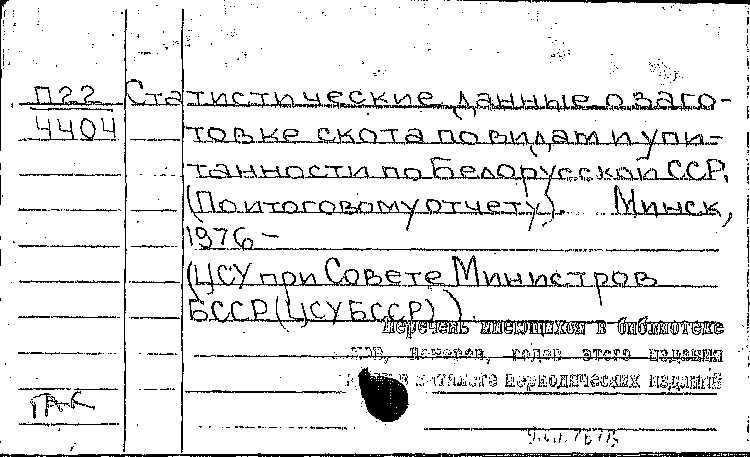 П22 Статистические данные о заго-
4404 товке скота по видам и упи-
танности по Белорусской ССР.
(По итоговому отчету). Минск,
1976 –
(ЦСУ при Совете Министров
БССР (ЦСУ БССР)).
Перечень имеющихся в библиотеке
номеров, годов этого издания
в каталоге периодических изданий